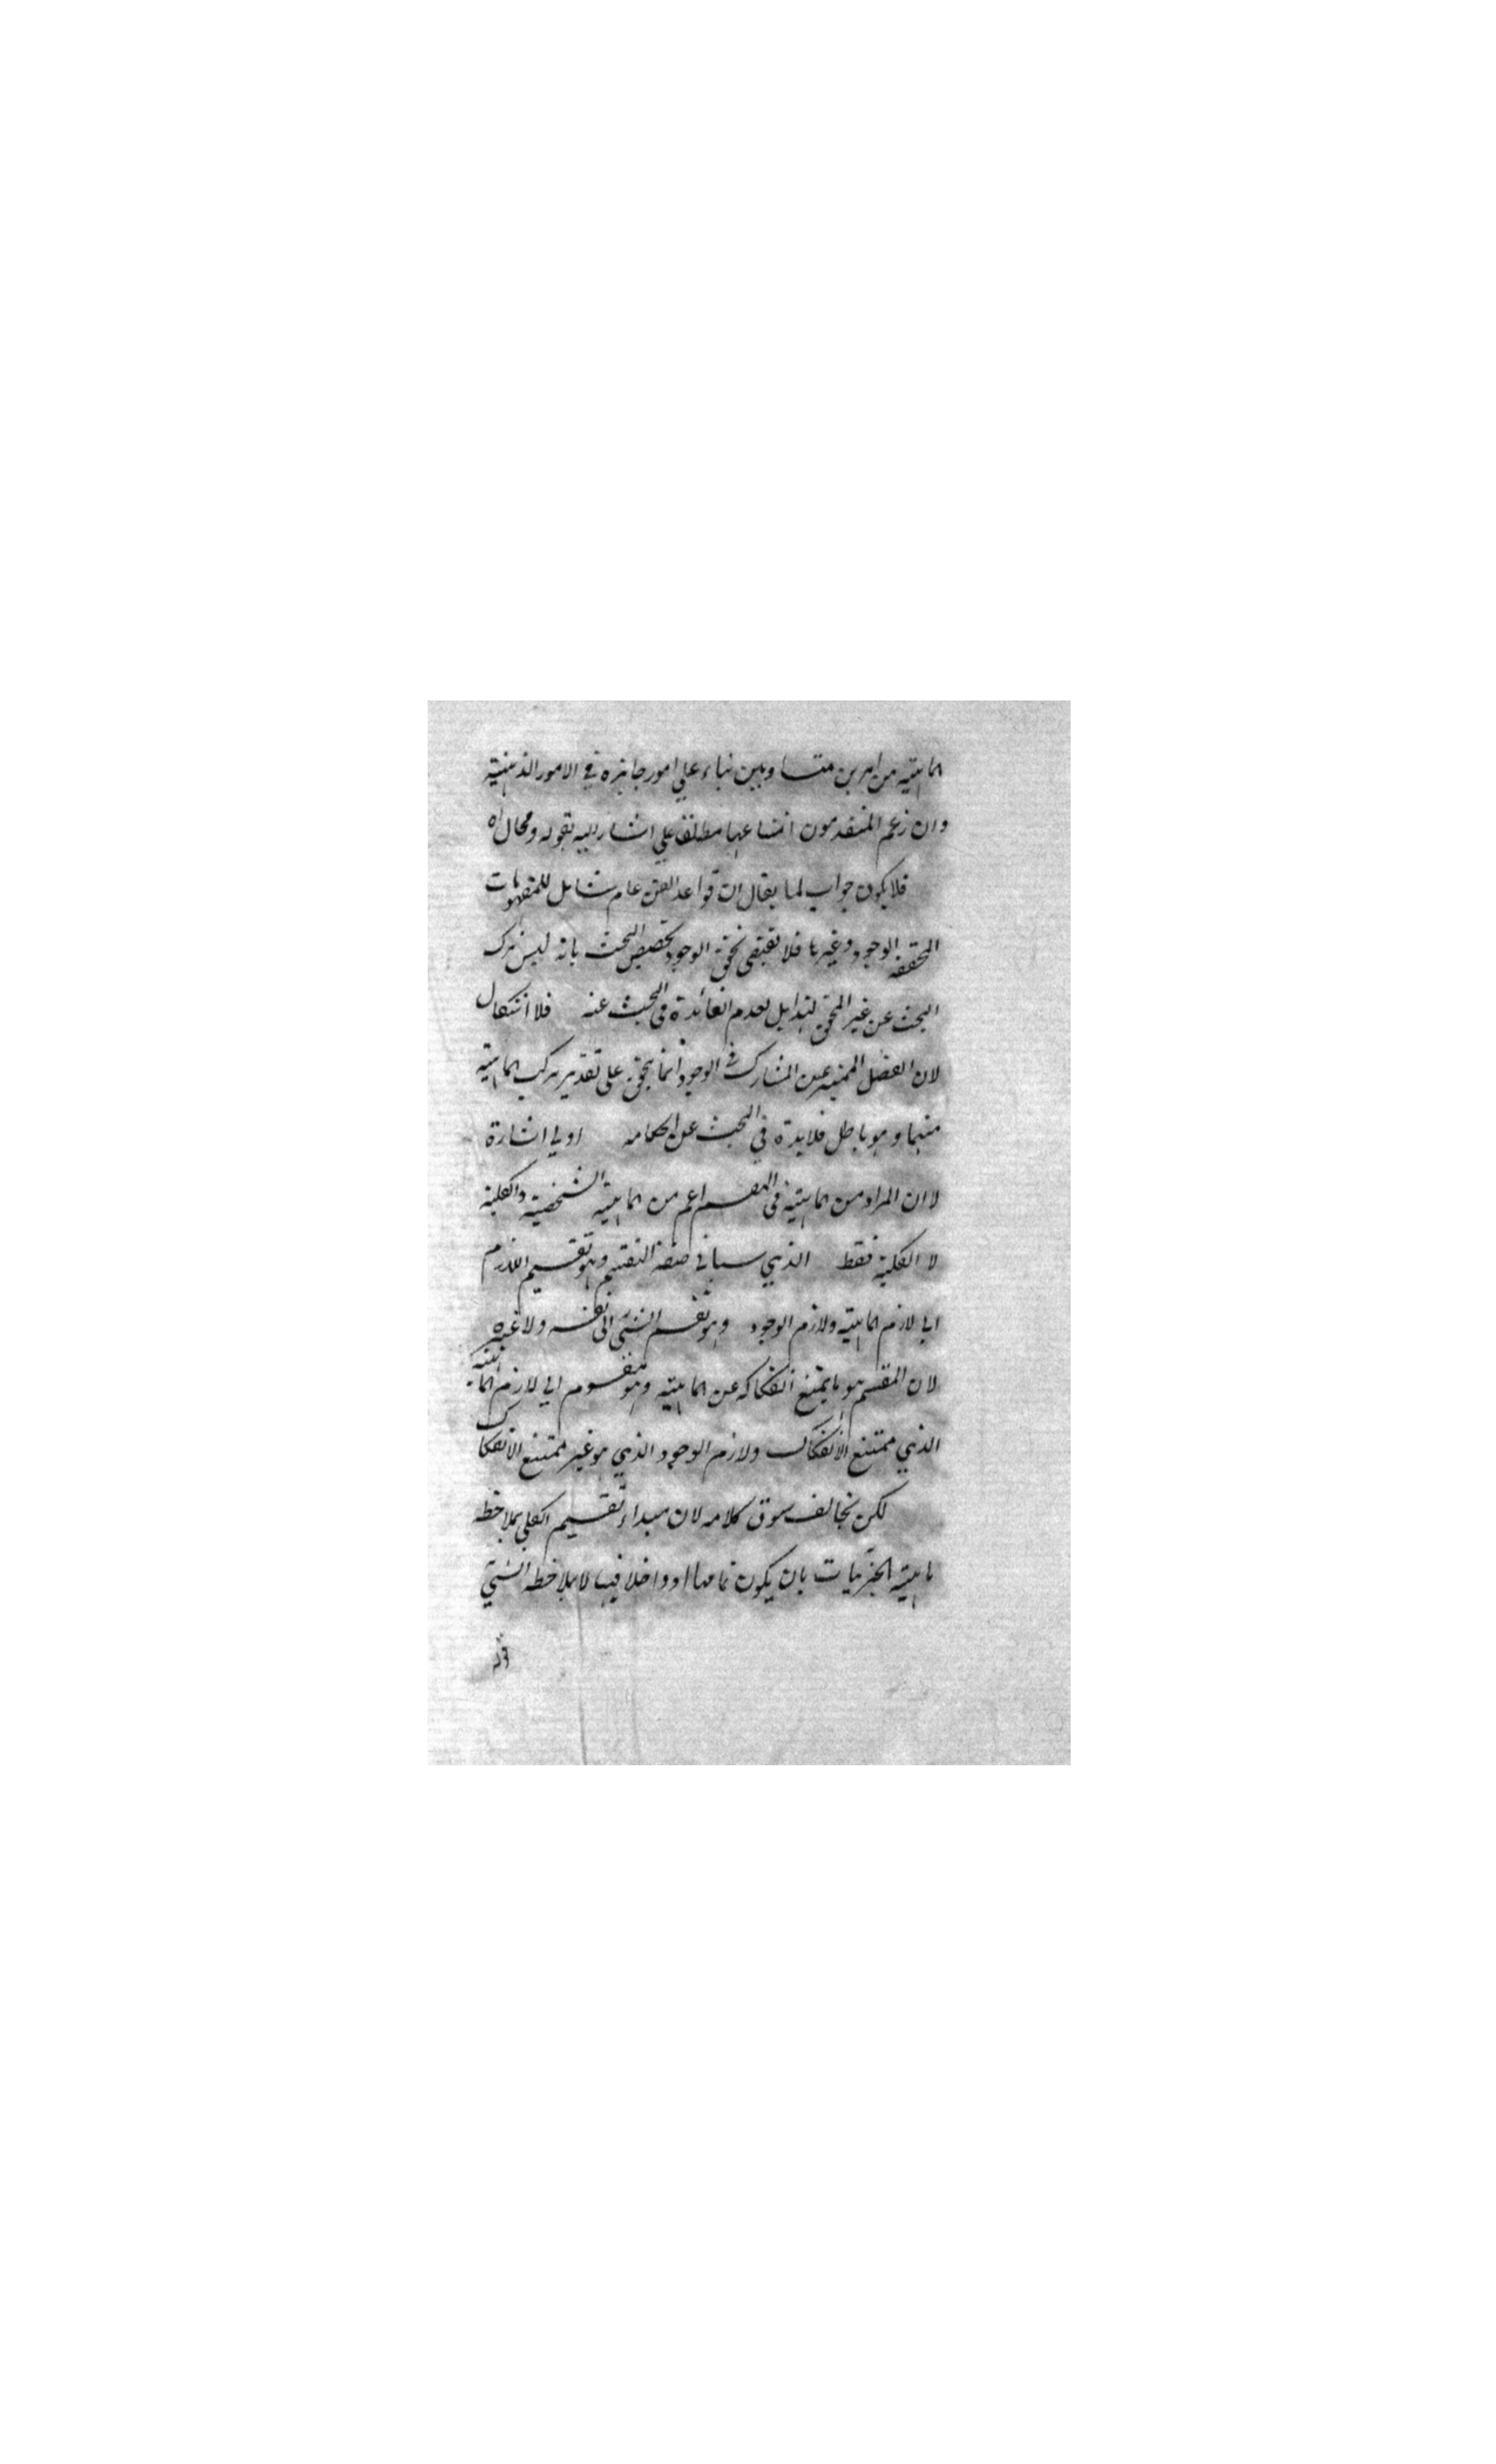 الماهيته من امرين متساويين بناء على امور جايزة في الامور الذهنية
وان زعم المتقدمون امتناعها مطلقا على اشار اليه بقوله ومحال اه
فلا يكون جواب لما يقال ان قواعد الفن عام شامل للمفهومات
المحققة الوجود وغيرها فلا تقتضى تحقق الوجود تخصيص البحث بانه ليس ترك
البحث عن غير المحقق لهذا بل لعدم الفائدة في البحث عنه فلا اشكال
لان الفصل المميز عن المشارك في الوجود انما يتحقق على تقدير تركب الماهيته
منهما وهو باطل فلا فايدة في البحث عن احكامه اولي اشارة
لا ان المراد من الماهيته في المقسم اعم من الماهيته الشخصية والكلية
لا الكلية فقط الذي سياتي صفة التقسيم وهو تقسيم اللازم
الي لازم الماهيته ولازم الوجود وهو تقسيم الشيء الى نفسه ولا غيره
لان المقسم هو ما يمتنع انفكاكه عن الماهيته وهو مقسوم الي لازم الماهيته
الذي ممتنع الانفكاك ولازم الوجود الذي هو غير ممتنع الانفكاك
لكن يخالف سوق كلامه لان مبداء تقسيم الكلي بملاحظه
ماهيته الجزئيات بان يكون تمامها او داخلا فيها لا بملاحظه الشيء